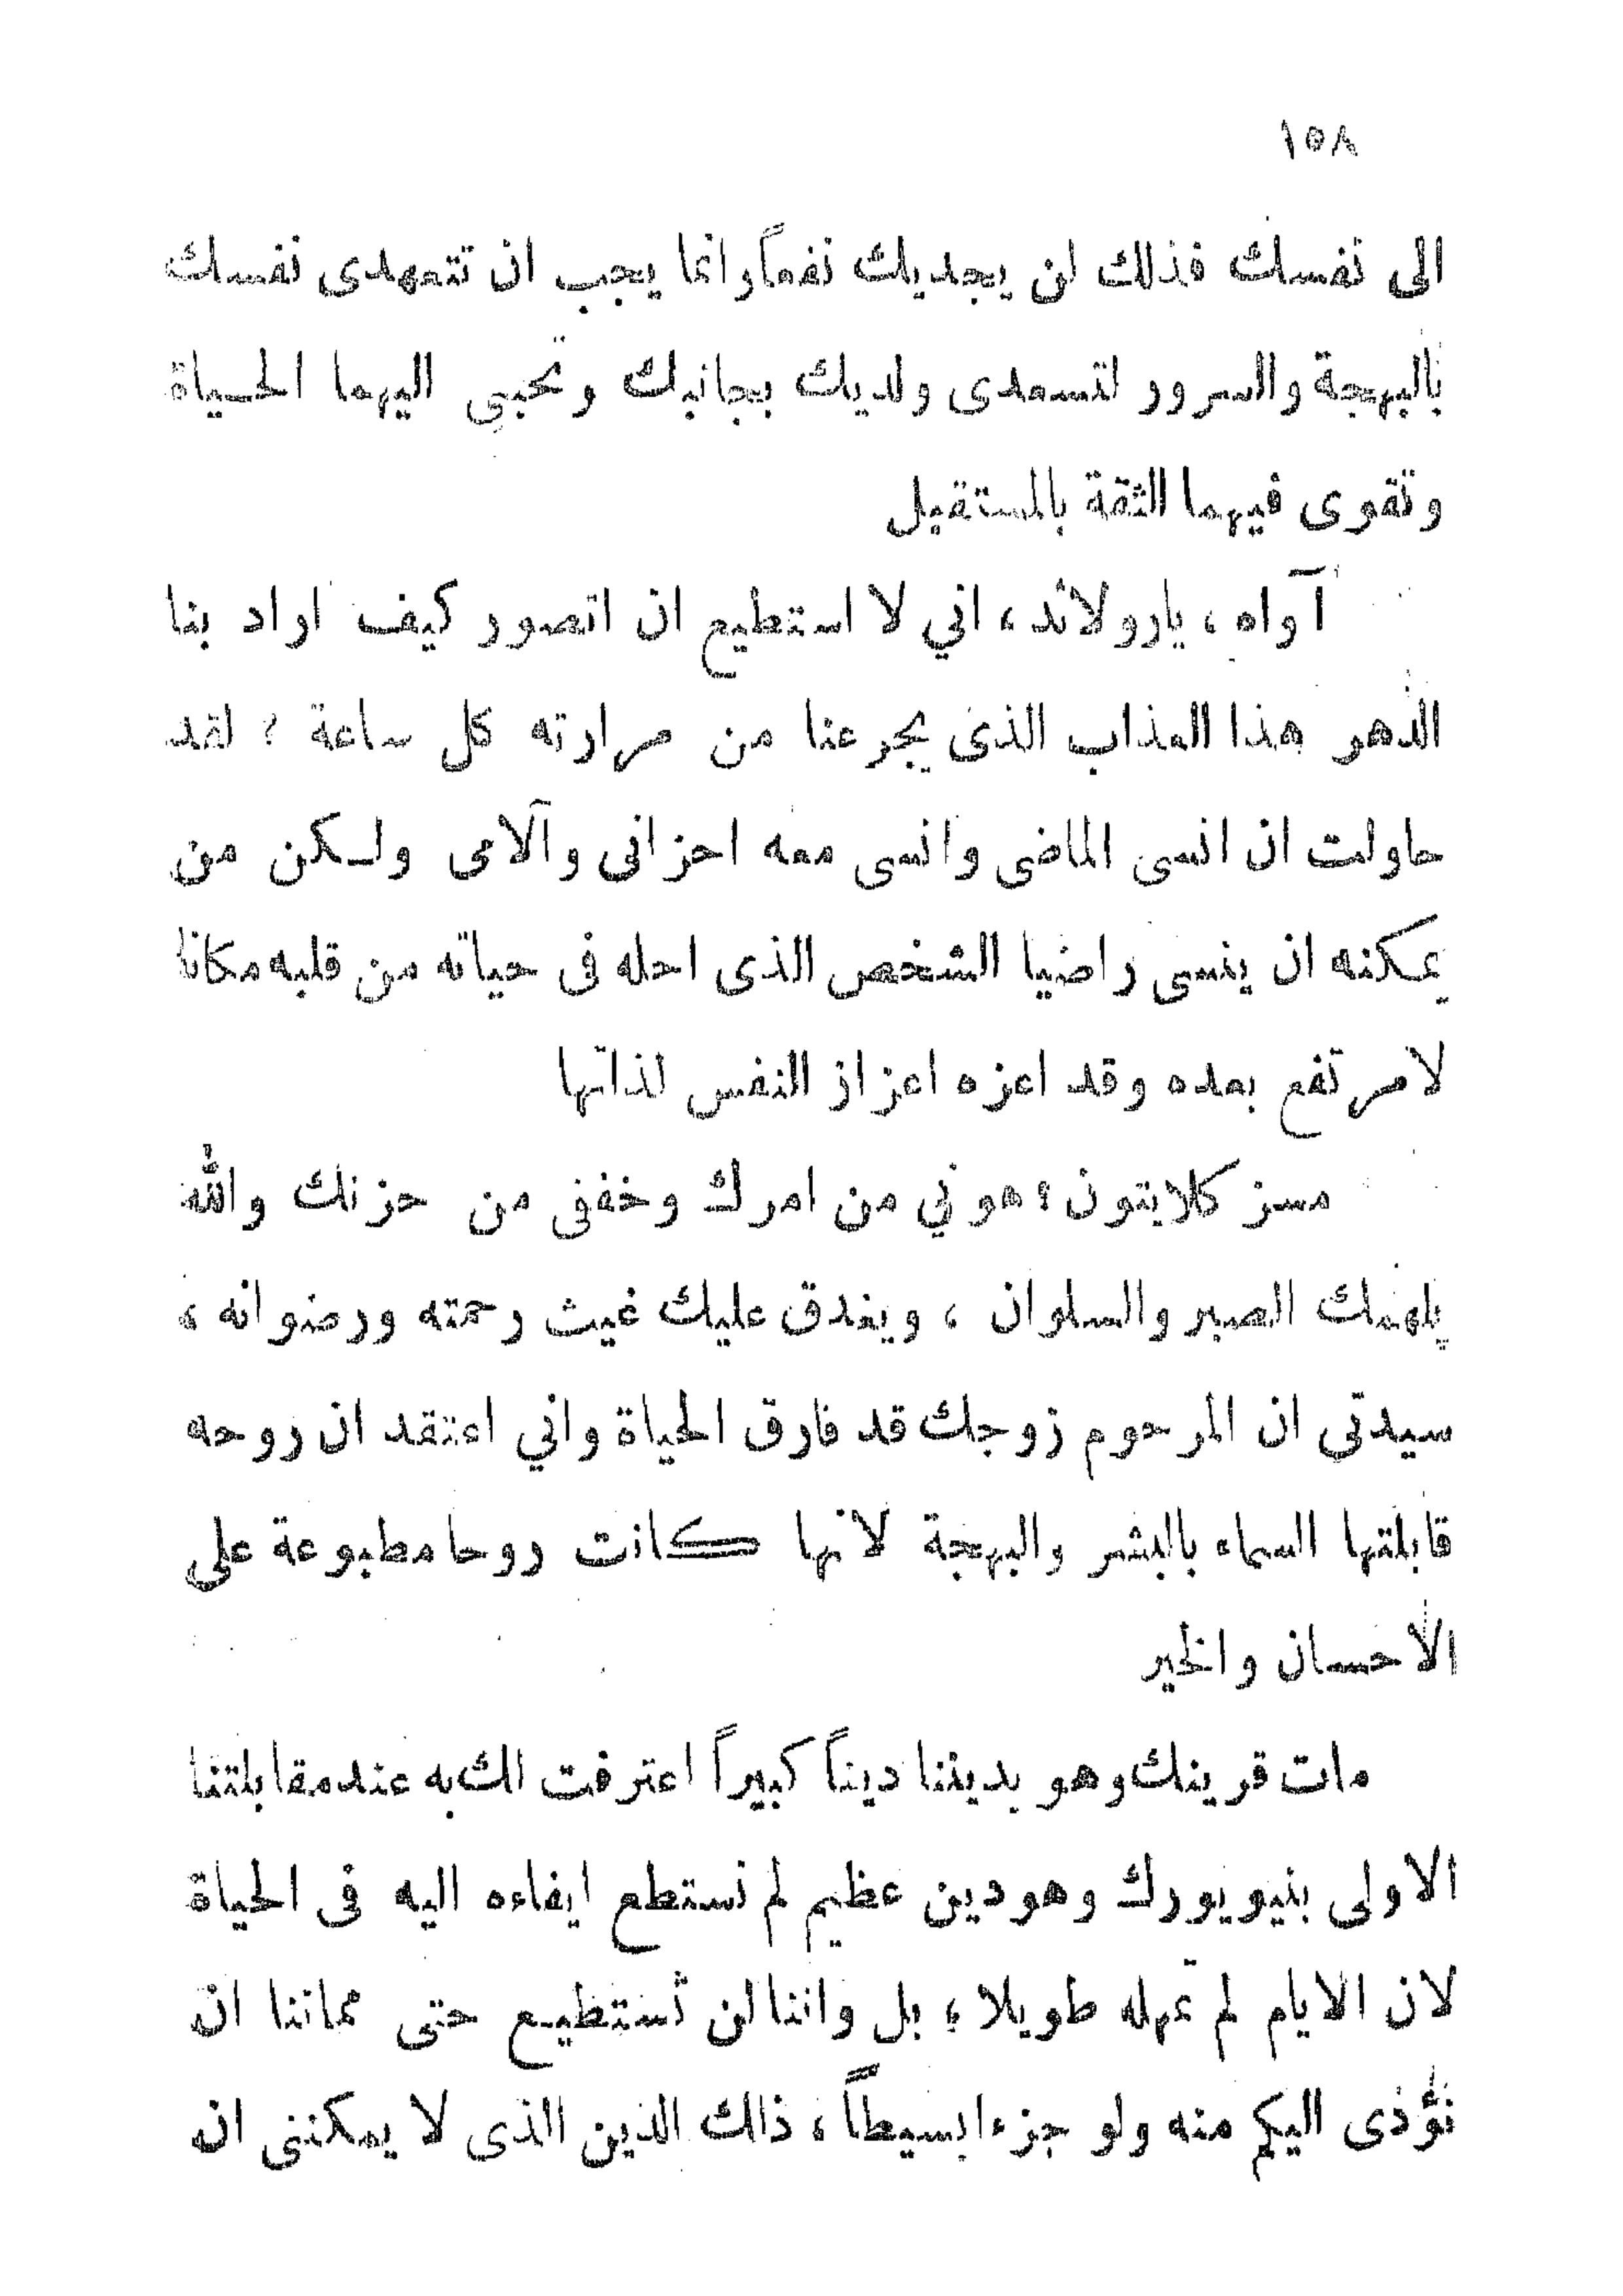 ١٥٨
الى نفسك فذلك لن يجديك نفعاً وانما يجب ان تتعهدى نفسك
بالبهجة والسرور لتسعدى ولديك بجانبك وتحببي اليهما الحياة
وتقوى فيهما الثقة بالمستقبل
آواه ، يارولاند ، اني لا استطيع ان اتصور كيف اراد بنا
الدهر هذا العذاب الذى يجرعنا من مرارته كل ساعة ؟ لقد
حاولت ان انسى الماضى وانسى معه احزانى وآلامى ولكن من
يمكنه ان ينسى راضيا الشخص الذى احله فى حياته من قلبه مكانا
لامرتفع بعده وقد اعزه اعزاز النفس لذاتها
مسز كلايتون ؛ هوني من امرك وخففى من حزنك والله
يلهمك الصبر والسلوان ، ويغدق عليك غيث رحمته ورضوانه ،
سيدتى ان المرحوم زوجك قد فارق الحياة واني اعتقد ان روحه
قابلتها السماء بالبشر والبهجة لانها كانت روحا مطبوعة على
الاحسان والخير
مات قرينك وهو بديننا ديناً كبيراً اعترفت لك به عند مقابلتنا
الاولى بنيويورك وهو دين عظيم لم نستطع ايفاءه اليه فى الحياة
لان الايام لم تمهله طويلا ؛ بل واننا لن نستطيع حتى مماتنا ان
نؤدى اليكم منه ولو جزءا بسيطاً ، ذلك الدين الذى لا يمكننى ان